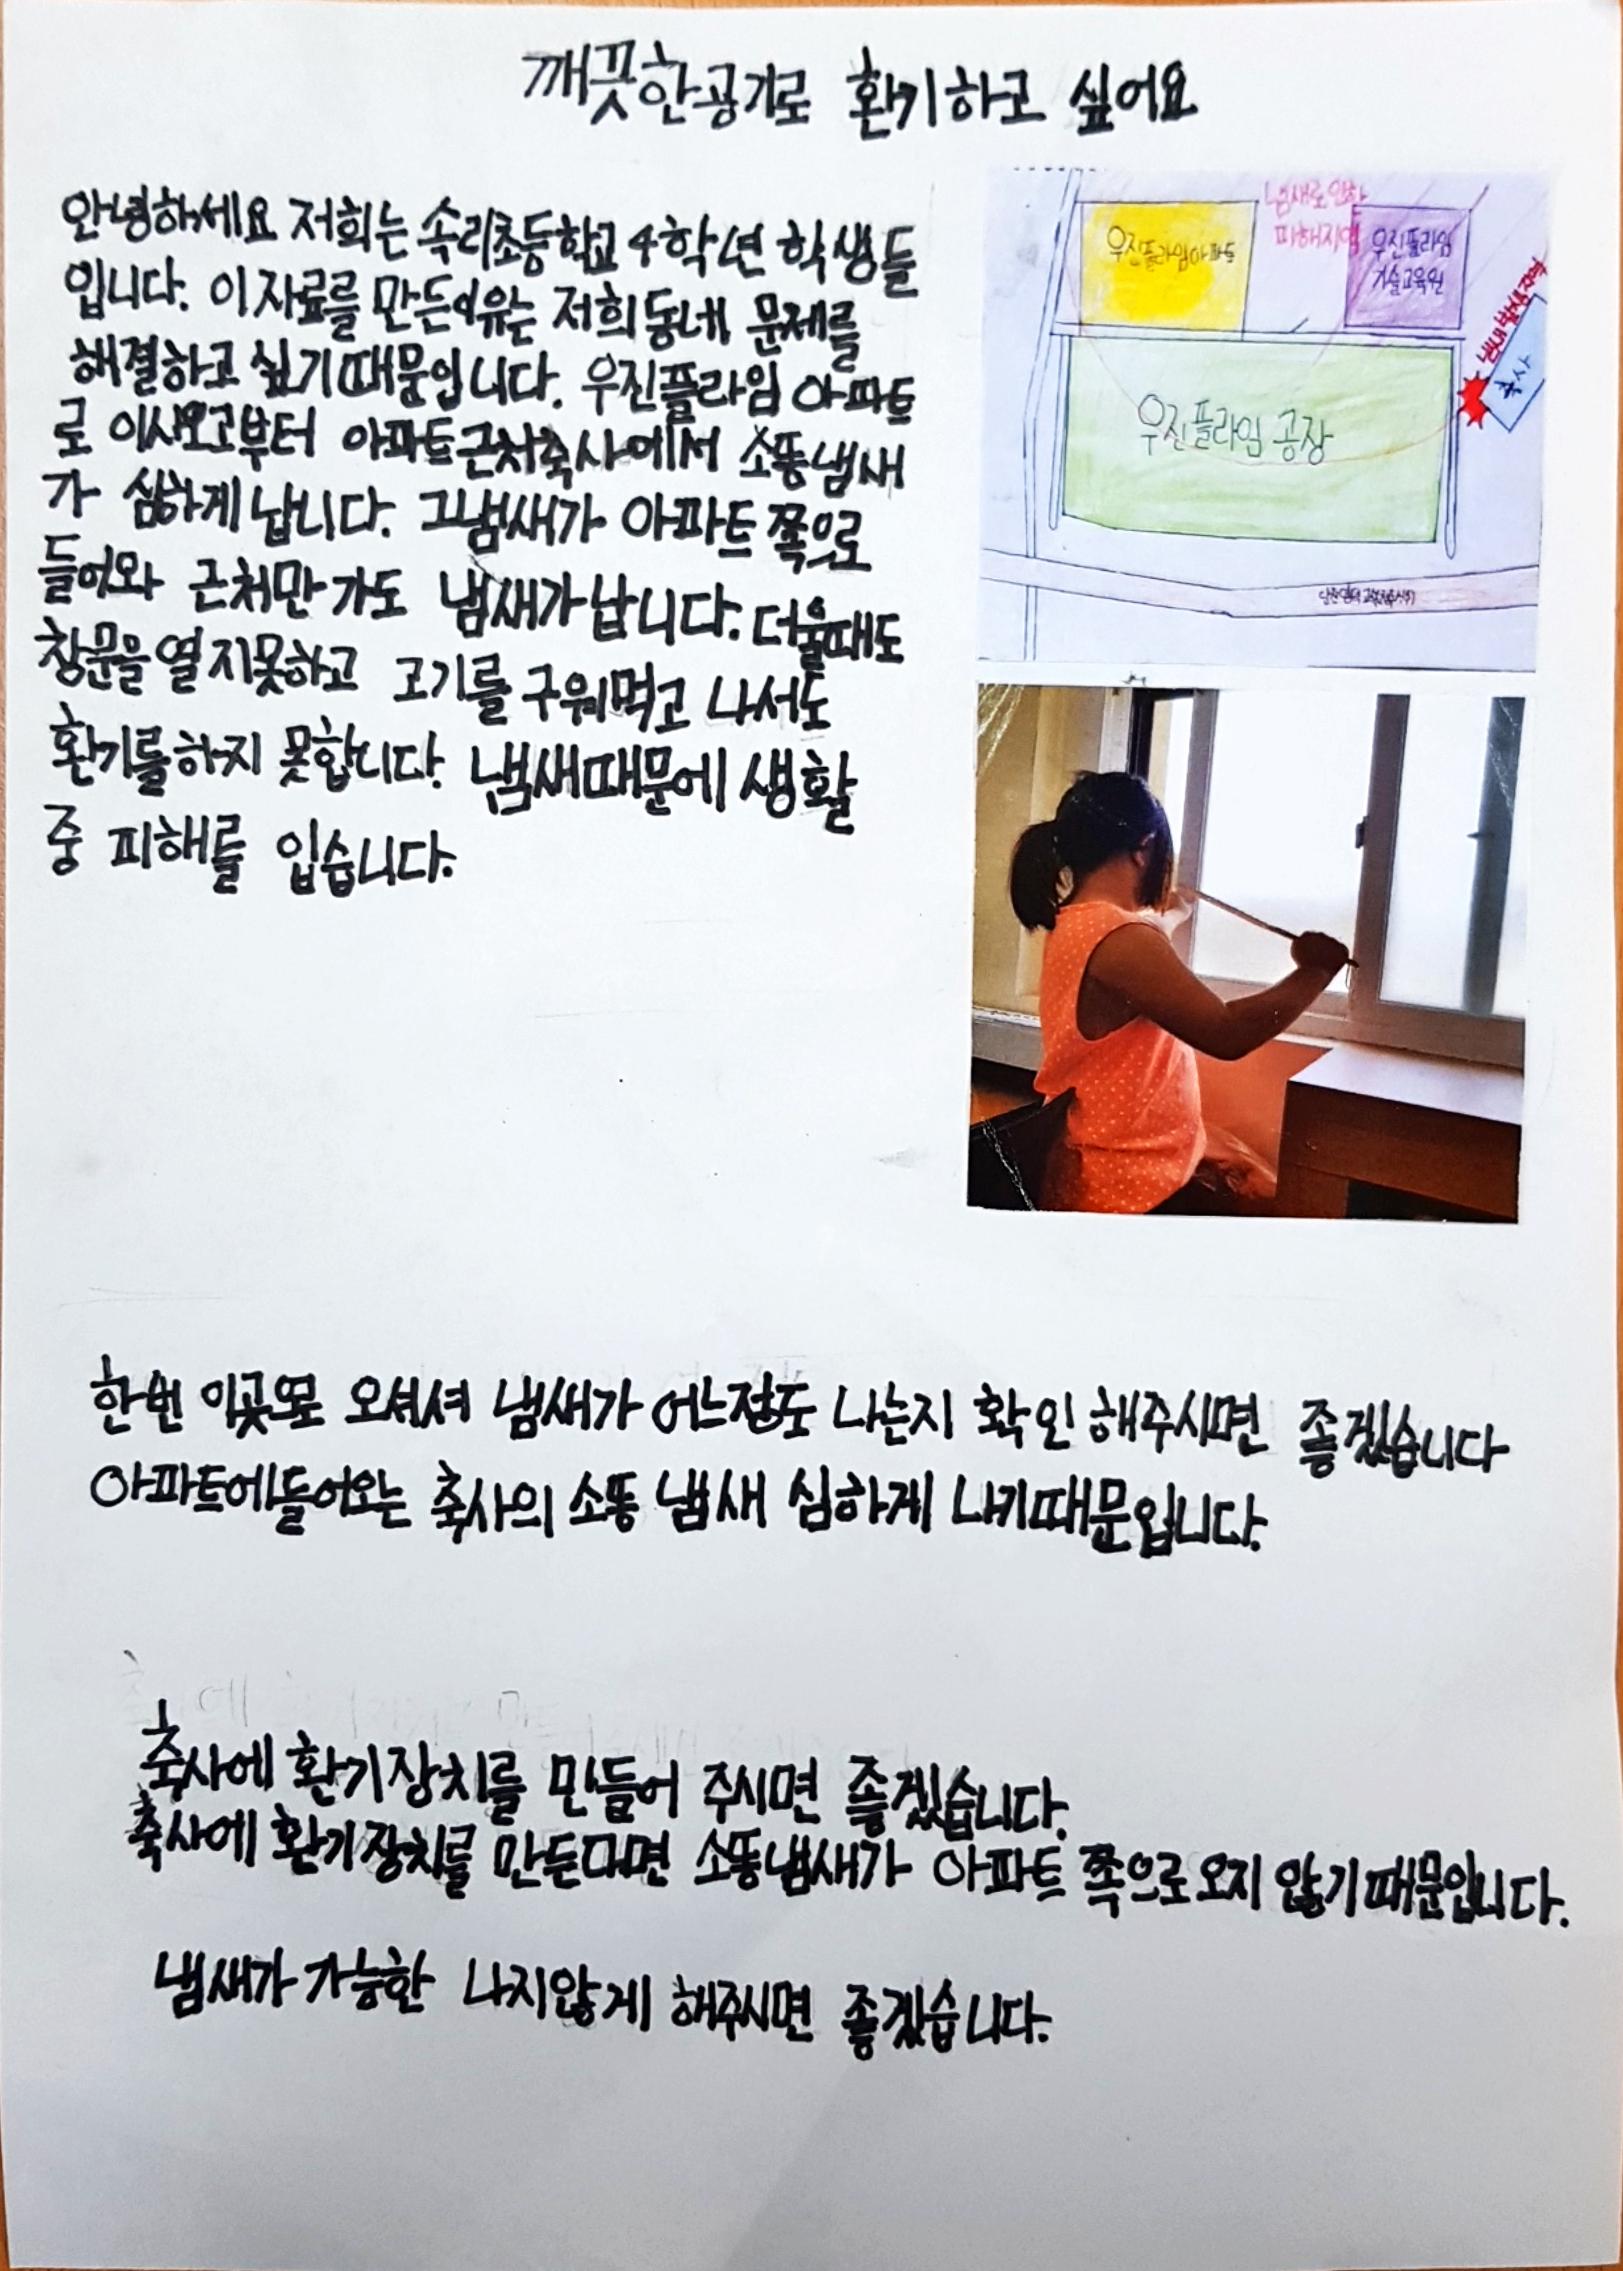 깨끗한공기로 환기하고 싶어요
안녕하세요 저희는 속리초등학교 4학년 학생들
입니다. 이 자료를 만든이유는 저희 동네 문제를
해결하고 싶기때문입니다. 우진플라임 아파트
로 이사오고부터 아파트근처축사에서 소똥냄새
가 심하게 납니다. 그냄새가 아파트 쪽으로
들어와 근처만 가도 냄새가 납니다. 더울때도
창문을 열지못하고 고기를 구워먹고 나서도
환기를하지 못합니다. 냄새때문에 생활
중 피해를 입습니다.
냄새로인한
피해지역
우진플라임아파트
우진플라임
기술교육원
냄새발생지역
축사
우진플라임 공장
한번 이곳으로 오셔셔 냄새가 어느정도 나는지 확인 해주시면 좋겠습니다
아파트에들어오는 축사의 소똥 냄새 심하게 나기때문입니다.
축사에 환기장치를 만들어 주시면 좋겠습니다.
축사에 환기장치를 만든다면 소똥냄새가 아파트 쪽으로 오지 않기때문입니다.
냄새가 가능한 나지않게 해주시면 좋겠습니다.